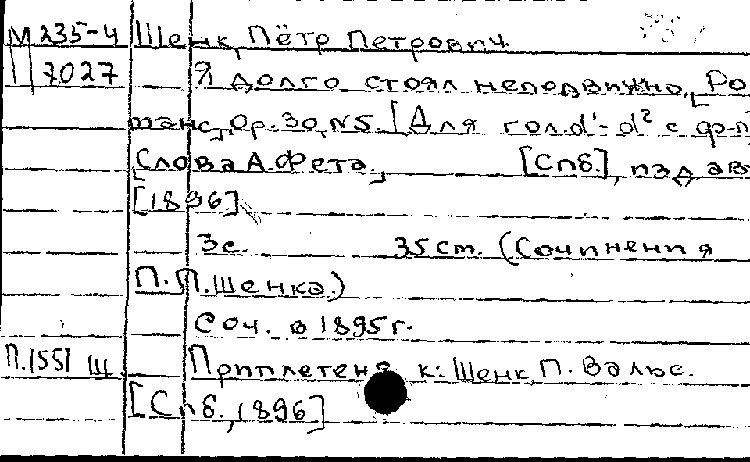 М 235-4 Шенк, Пётр Петрович.
7027 Я долго стоял неподвижно, [Ро
манс], Op. 30, N5. [Для гол. d¹-d² с ф-п
Слова А. Фета, [Спб.], изд. авт
[1896]
3с. 35 cm. (Сочинения
П. П. Шенка.)
Соч. в 1895 г.
П.1551 Щ Приплетена к: Шенк, П. Вальс.
[Спб., 1896]